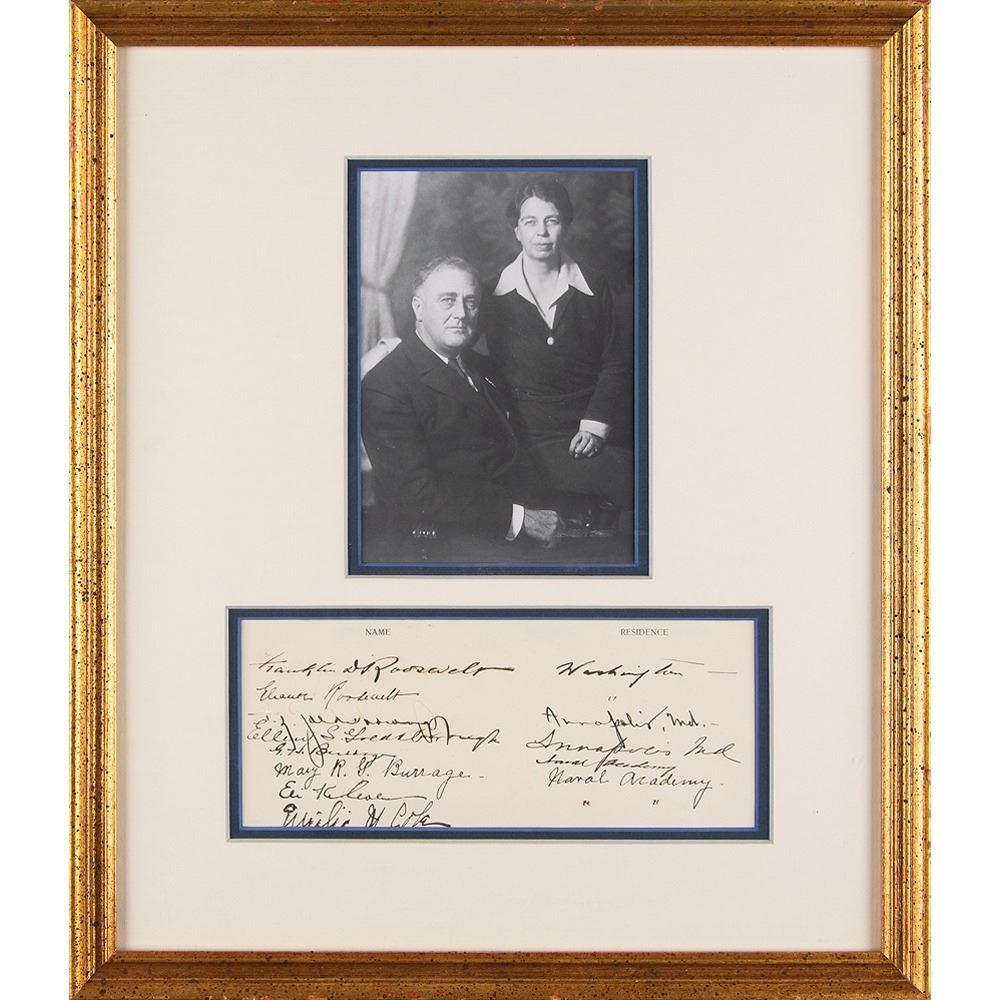 NAME RESIDENCE
Franklin D Roosevelt Washington
Eleanor Roosevelt "
Annapolis, Md.
Ellen S. Goldsborough Annapolis Md
Burrage Naval Academy
Mary R. G. Burrage Naval Academy
" "
Emilie H Cole